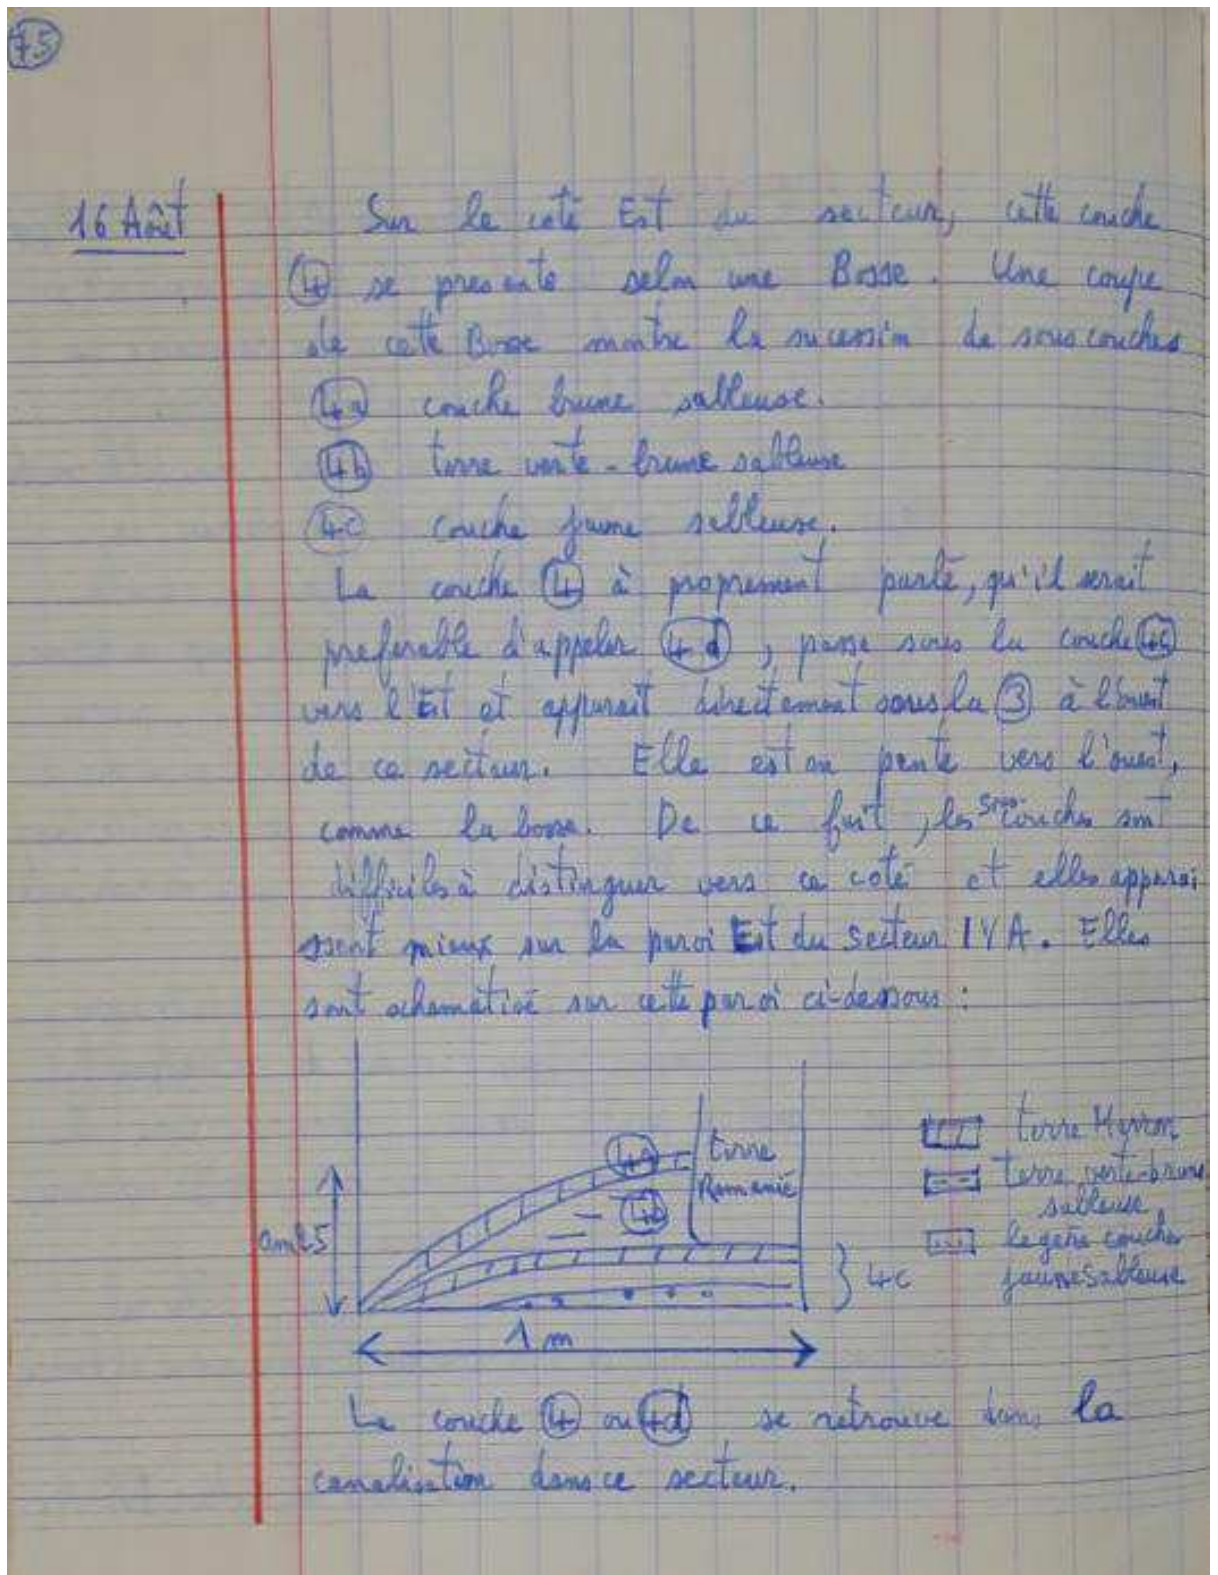 75
16 Août
Sur le coté Est du secteur, cette couche
4 se presente selon une Bosse. Une coupe
de cette Bosse montre la sucession de sous couches
4a couche brune sableuse.
4b terre verte-brune sableuse
4c couche jaune sableuse.
La couche 4 à proprement parlé, qu'il serait
preferable d'appeler 4d, passe sous la couche 4c
vers l'Est et apparait directement sous la 3 à l'ouest
de ce secteur. Elle est en pente vers l'ouest,
comme la bosse. De ce fait, les sous couches sont
difficiles à distinguer vers ce coté et elles apparai
ssent mieux sur la paroi Est du secteur IVA. Elles
sont schematisé sur cette paroi ci-dessous :
4a
terre
Romanié
4b
0m25
4c
1 m
terre
terre verte-brune
sableuse
legere couche
jaune sableuse
La couche 4 ou 4d se retrouve dans la
canalisation dans ce secteur.